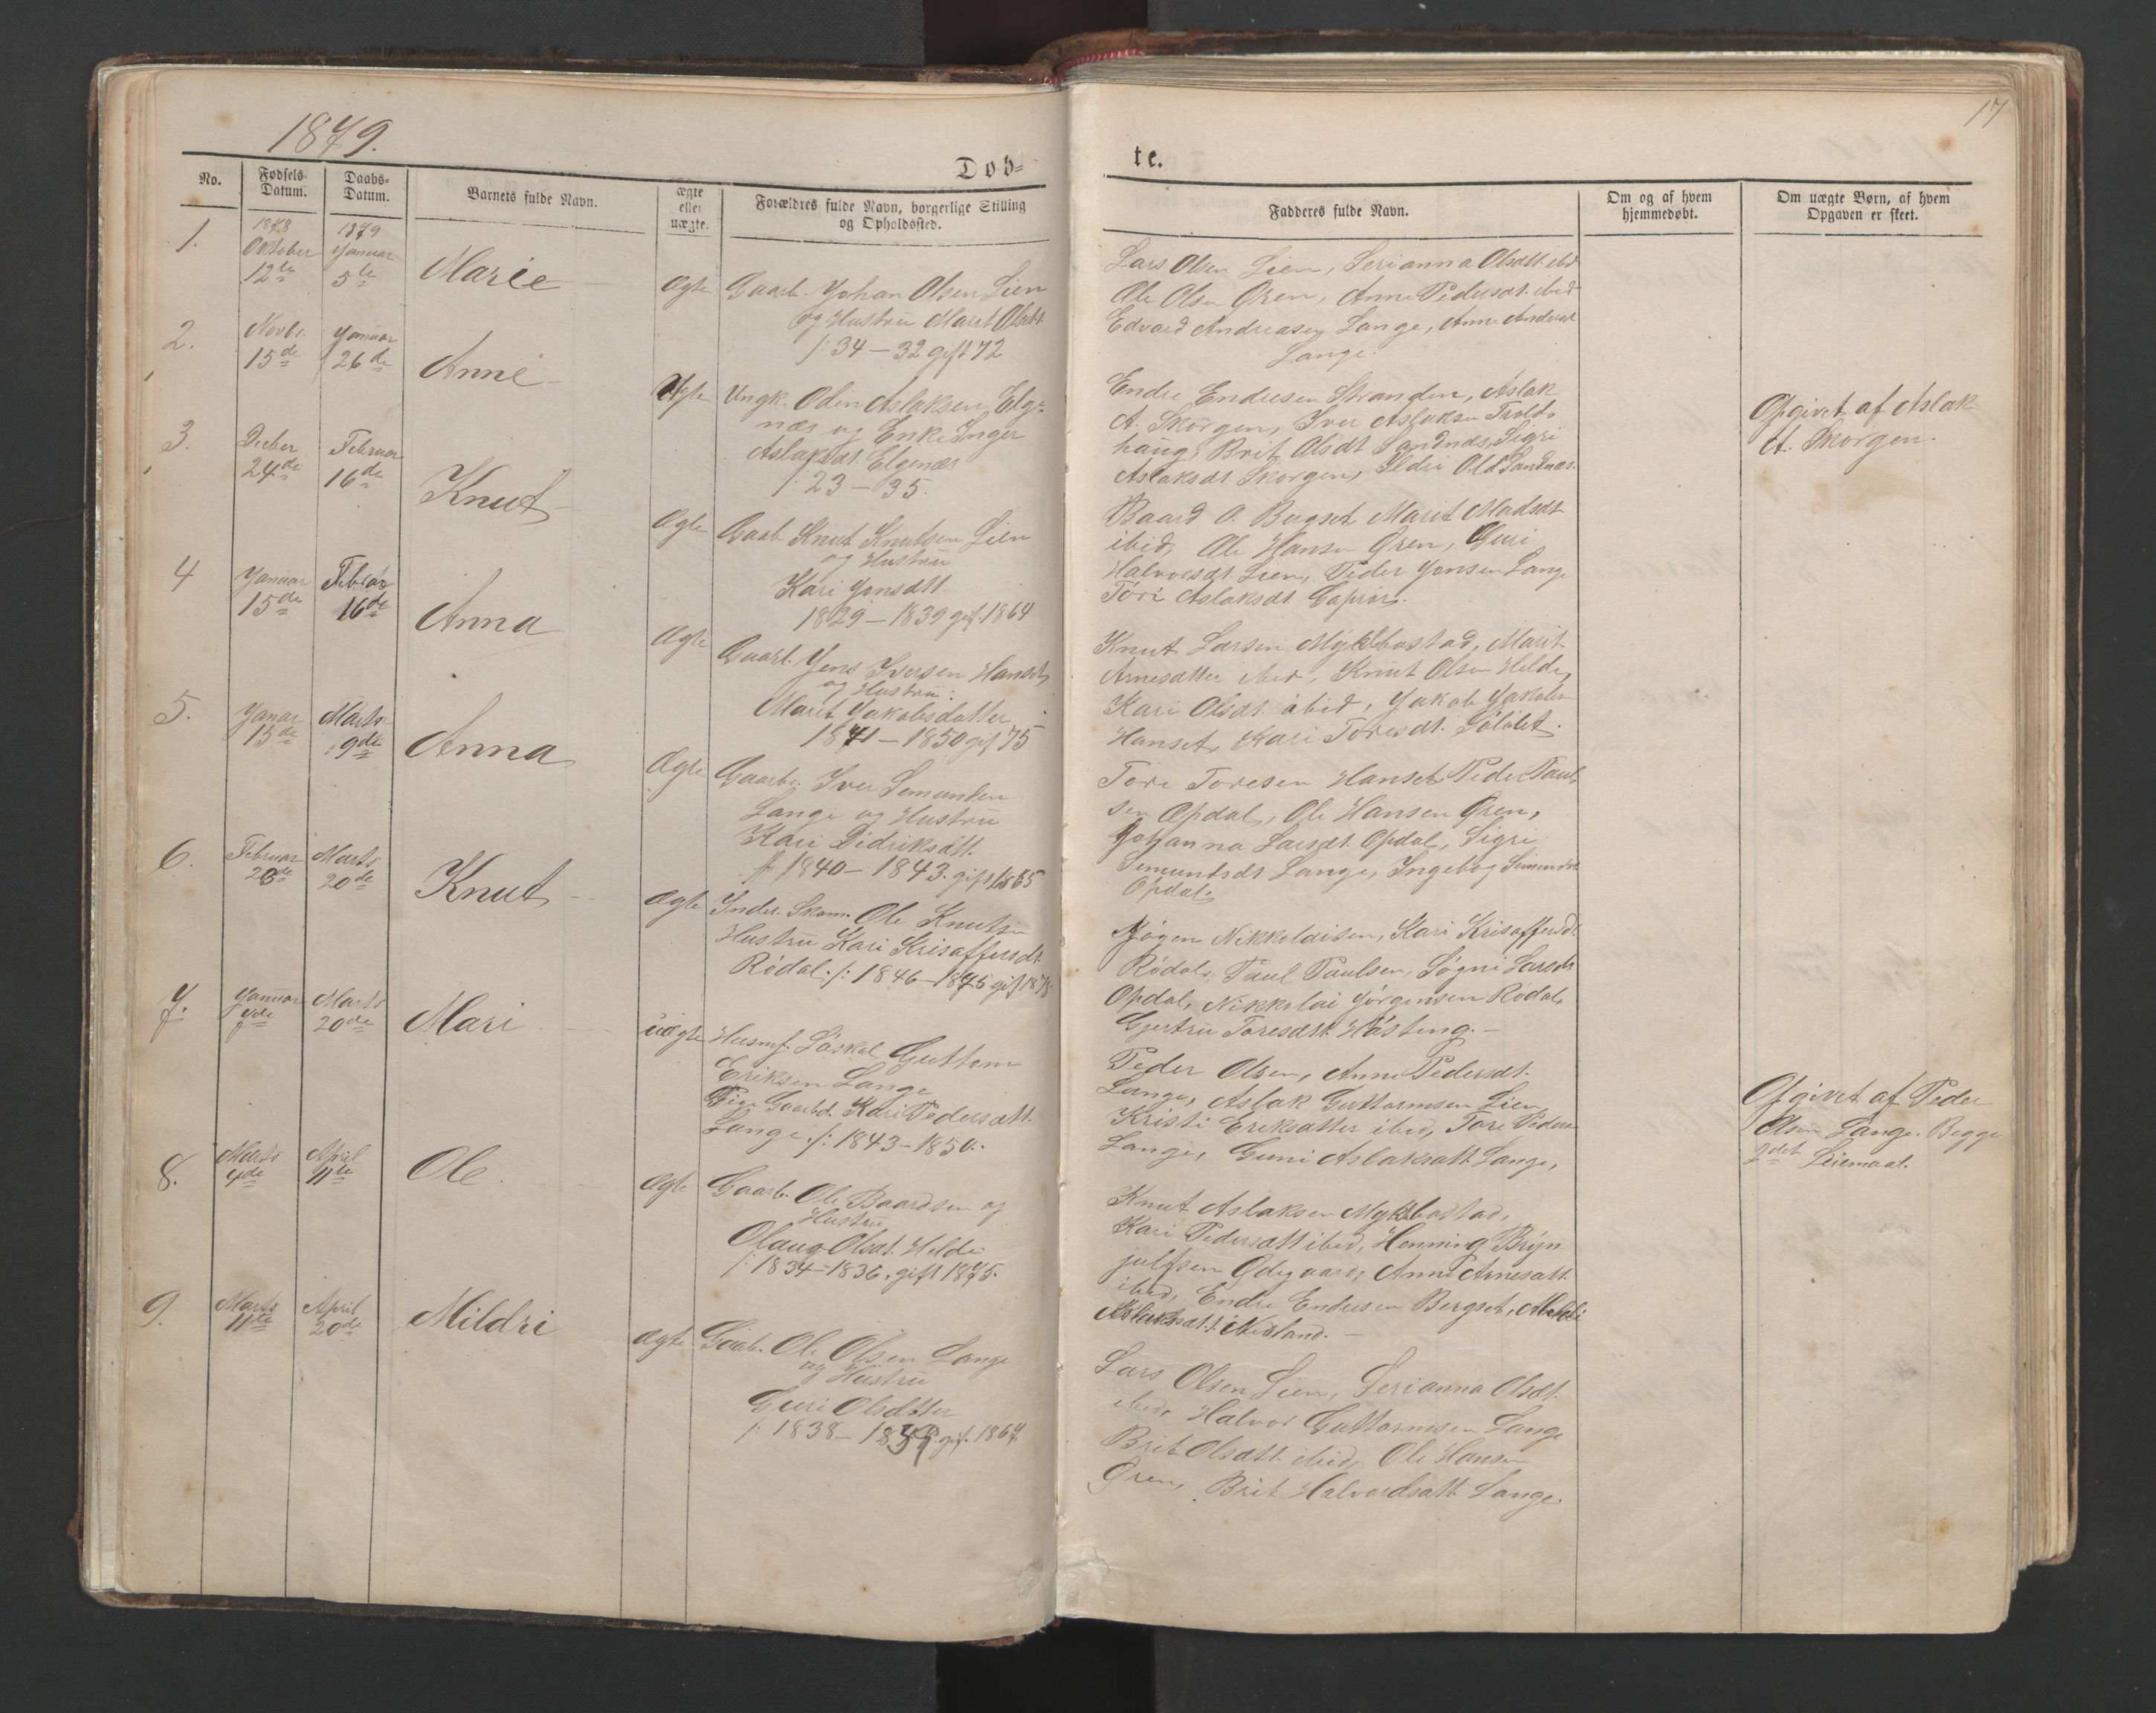 1879.
Døb-
No.
Fødsels-
Datum.
Daabs-
Datum.
Barnets fulde Navn.
ægte
eller
uægte.
Forældres fulde Navn, borgerlige Stilling
og Opholdssted.
1.
1878
Oktober
12te
1879
Januar
5te
Marie
Ægte
Gaarb. Johan Olsen Lien
og Hustru Marit Olsdtt
/: 34 – 32 gift 72
2.
Novbr.
15de
Januar
26de
Anne
Ægte
Ungk. Oden Aslaksen Elge-
næs og Enke Inger
Aslaksdt. Elgenæs
/: 23 – 35.
3.
Decber
24de
Februar
16de
Knut
Ægte
Gaarb Knut Knutsen Lien
og Hustru
Kari Jonsdtt.
1829 – 1839 gif. 1864
4
Januar
15de
Februar
16de
Anna
Ægte
Gaarb. Jens Iversen Hanset
og Hustru:
Marit Jakobsdatter
– 1850 gif 75
5.
Janar
15de
Marts
9de
Anna
Ægte
Gaarb. Iver Semundsen
Lange og Hustru
Kari Didriksdtt.
1840 – 1843. gift 1865
6.
Februar
Marts
20de
Knut
Ægte
Inder. Skom. Ole Knutsen
Hustru Kari Krisaffersdt.
Rødal. /: 1846 – gif 1878
7.
Januar
7de
Marts
20de
Mari
uægte
Husmf. Guttorm
Eriksen Lange
Pige Gaarbd. Kari Pedersdtt.
Lange. /: 1843 – 1850.
8.
Marts
4de
April
11te
Ole
Ægte
Gaarb. Ole Baardsen og
Hustru
Olaug Olsdt. Helde
/: 1834 – 1836. gift 1875.
9.
Marts
11te
April
20de
Mildri
Ægte
Gaarb. Ole Olsen Lange
og Hustru
Guri Olsdtter
/: 1838 – gif. 1864
17
te.
Fadderes fulde Navn.
Om og af hvem
hjemmedøbt.
Om uægte Børn, af hvem
Opgaven er skeet.
Lars Olsen Lien, Serianna Olsdtt. ibd
Ole Olsen Øren, Anne Pedersdt. ibid
Edvard Andreasen Lange, Anne Andersd
Lange.
Endre Endresen Stranden, Aslak
A. Skorgen, Iver Aslaksen Trold-
haug, Brit Olsdt Sandnes, Sigri
Aslaksdt Skorgen, Ildri Old Sandnæs.
Opgivet af Aslak
A. Skorgen.
Baard O. Bugset, Marit Madsdt
ibid, Ole Hansen Øren, Guri
Halvorsdt. Lien, Peder Jonsen Lange
Töri Aslaksdt.
Knut Larsen Myklebostad, Marit
Arnesdtter ibid, Knut Olsen Helde,
Kari Olsdt. ibid, Jakob Jakobsen
Hanset, Kari Toresdt.
Tore Toresen Hanset, Peder Paul-
sen Opdal, Ole Hansen Øren,
Johanna Larsdt. Opdal, Sigri
Semundsdt Lange, Ingebog
Opdal,
Jögen Nikkolaisen, Kari Krisaffersdt.
Rødal, Paul Paulsen, Sögni Larsdt
Opdal, Nikkolai Jörgensen Rødal,
Gjertru Toresdtt. –
Peder Olsen, Anne Pedersdt.
Lange, Aslak Guttormsen Lien,
Kristi Eriksdtter ibid, Tore Peders
Lange, Guni Aslaksdtt Lange,
Opgivet af Peder
Olsen Lange. Begge
2det Leiemaal.
Knut Aslaksen Myklebostad,
Kari Pedersdtt ibid, Henning Bryn
julfsen Ödegaard, Anne Arnesdtt.
ibid, Endre Endresen Bergset,
Aslaksdtt. Nesland. –
Lars Olsen Lien, Serianna Olsdt.
ibid, Halvor Guttormsen Lange
Brit Olsdtt. ibid, Ole Hansen
Øren, Brit Halvordsdtt. Lange.